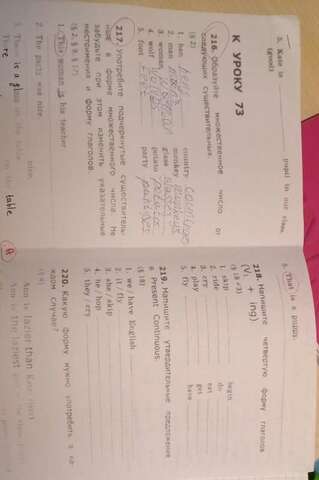 5. Kate is
(good)
pupil in our class.
К УРОКУ 73
216. Образуйте множественное число от
следующих существительных.
(§ 2)
1. hen
2. man
3. woman
4. wolf
5. foot
country
monkey
glass
potato
party
217. Употребите подчеркнутые существитель-
ные в форме множественного числа. Не
забудьте при этом изменить указательные
местоимения и форму глаголов.
1. This woman is his teacher.
2. The party was nice.
nice.
3. There is a glass on the table.
There
on the table
5. That is a puppy.
218. Напишите четвертую форму глаголов
(V₁ + ing).
1. skip
2. ride
3. cry
4. play
5. fly
begin
do
eat
get
have
219. Напишите утвердительные предложения
в Present Continuous.
(§ 18)
1. we / have English
2. it / fly
3. she / skip
4. he / hop
5. they / cry
220. Какую форму нужно употребить в ка-
ждом случае?
Ann is lazier than Kate. (lazy)
Ann is the laziest